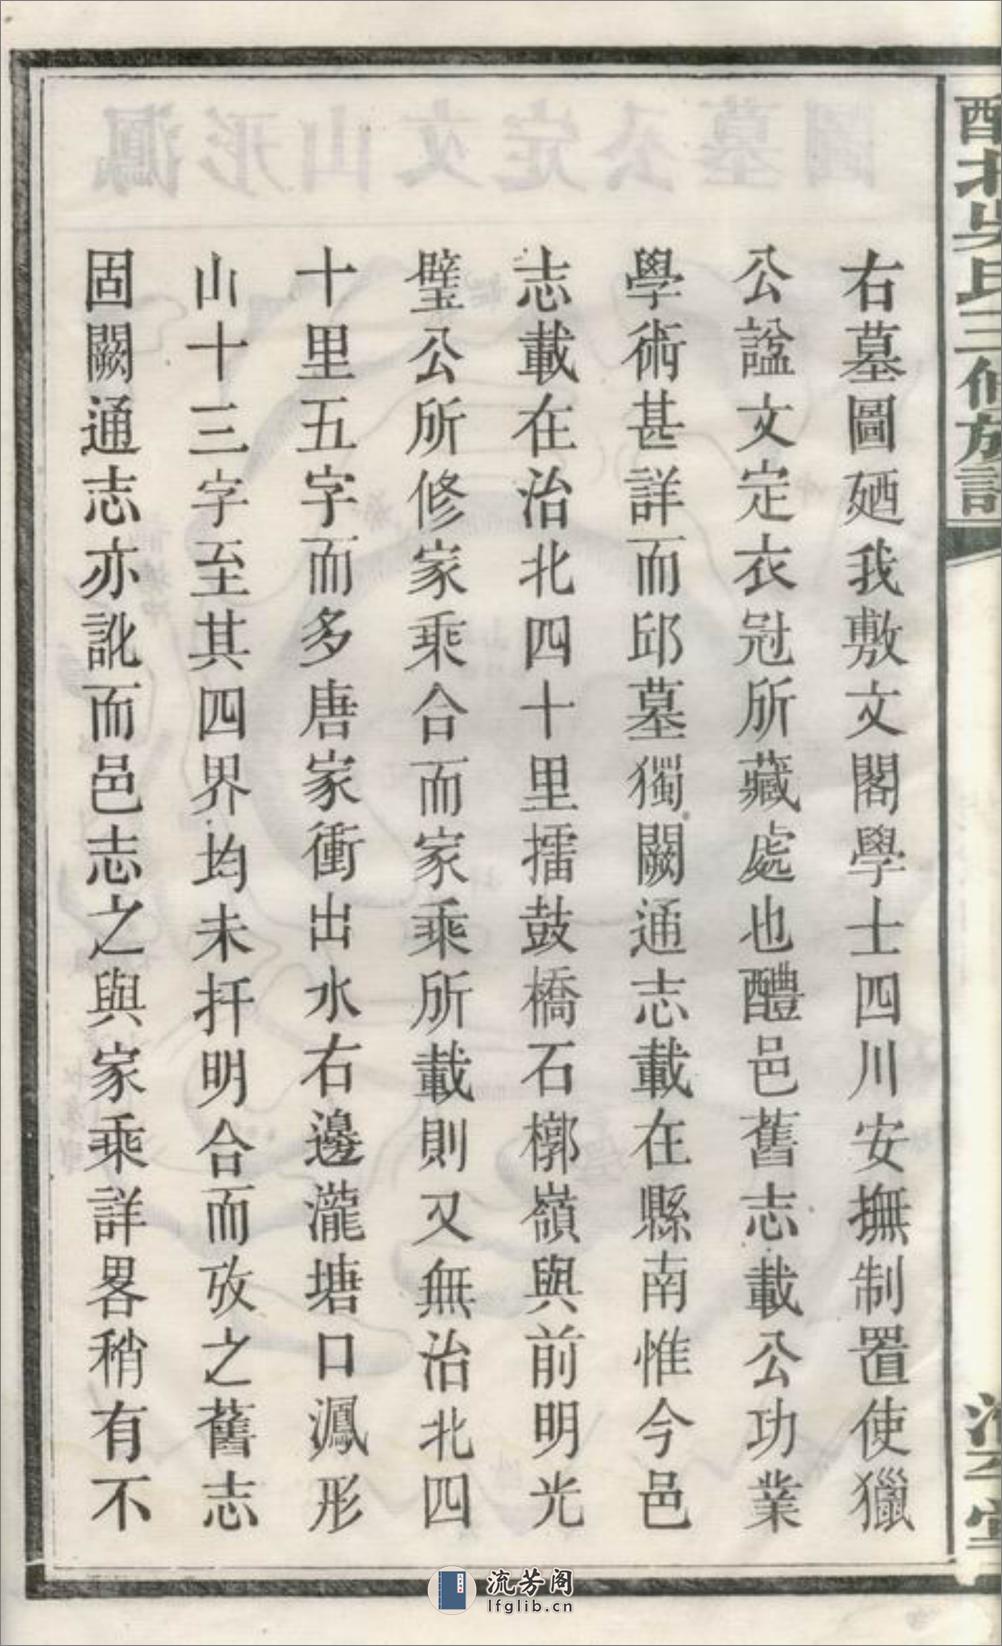 醴北吳氏三修族譜
右墓圖廼我敷文閣學士四川安撫制置使獵
公諡文定衣冠所藏處也醴邑舊志載公功業
學術甚詳而邱墓獨闕通志載在縣南惟今邑
志載在治北四十里擂鼓橋石槨嶺與前明光
璧公所修家乘合而家乘所載則又無治北四
十里五字而多唐家衝出水右邊瀧塘口鳳形
山十三字至其四界均未扞明合而攷之舊志
固闕通志亦訛而邑志之與家乘詳畧稍有不
流芳阁
lfglib.cn